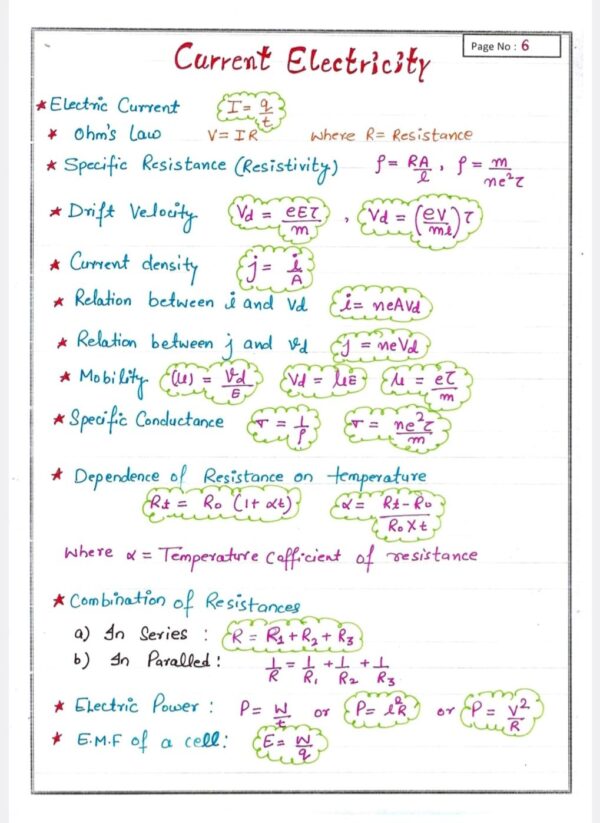 Page No : 6
Current Electricity
★ Electric Current I = q/t
★ Ohm's Law V = IR where R = Resistance
★ Specific Resistance (Resistivity) ρ = RA/l , ρ = m/ne²τ
★ Drift Velocity Vd = eEτ/m , Vd = (eV/ml)τ
★ Current density j = i/A
★ Relation between i and Vd i = neAVd
★ Relation between j and vd j = neVd
★ Mobility (μ) = Vd/E Vd = μE μ = eτ/m
★ Specific Conductance σ = 1/ρ σ = ne²τ/m
★ Dependence of Resistance on temperature
Rt = Ro (1 + αt) α = Rt - Ro/Ro X t
Where α = Temperature Cofficient of resistance
★ Combination of Resistances
a) In Series : R = R1 + R2 + R3
b) In Paralled : 1/R = 1/R1 + 1/R2 + 1/R3
★ Electric Power : P = W/t or P = i²R or P = V²/R
★ E.M.F of a cell : E = W/q